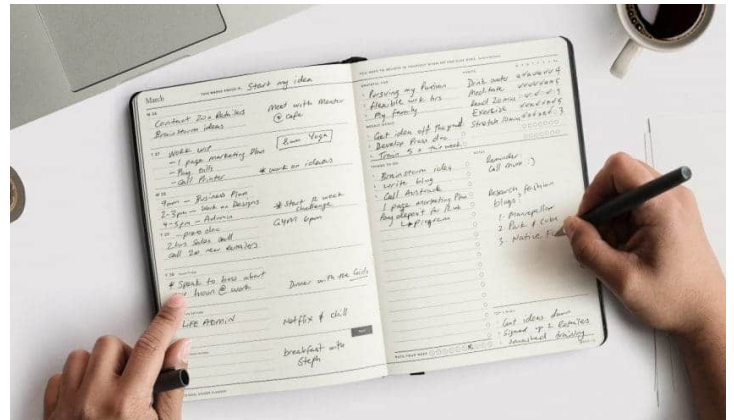 March
THIS WEEK'S FOCUS IS: Start my idea
M 26
Contact 20x Retailers
Brainstorm ideas
Meet with Mentor
@ Cafe
T 27
Work WIP
- 1 page marketing Plan
- Pay Bills
- Call Printer
8am Yoga
* work on ideas
W 28
9am - Business Plan
2-3pm - Work on Designs
4-5pm - Admin
* Start 12 week
Challenge
- press doc
2 hrs sales call
call 20 new Retailers
GYM 6pm
* Speak to boss about
hours @ work
Dinner with the Girls
LIFE ADMIN
Netflix & chill
breakfast with
Steph
GRATEFUL FOR
· Pursuing my Passion
· flexible work hrs
· My family
· Get idea off the ground
· Develop Press doc
· Train 5 x this week
THINGS TO DO
· Brainstorm idea
· write blog
· Call Australia
· 1 page marketing Plan
· Pay deposit for
Program
HABITS
Drink water
Meditate
Read 20 mins
Exercise
Stretch 10min
NOTES
Reminder
Call mom :)
Research fashion
blogs
1. Manrepeller
2. Park & Cube
3. Native
· Got ideas down
· Signed up 2 Retailers
RATE YOUR WEEK